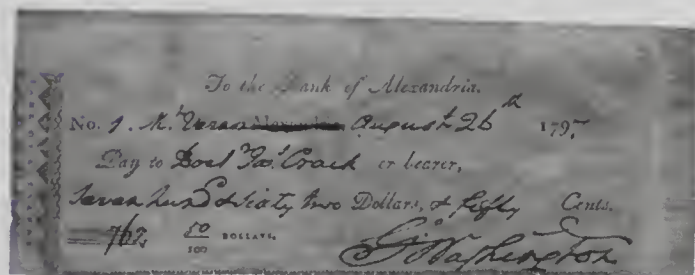 To the Bank of Alexandria.
No. 1. Mt Vernon Alexandria August 26th 1797
Pay to Doctr Jas. Craik or bearer,
Seven hund & sixty two Dollars, & fifty Cents.
762. 50/100 DOLLARS.
Go Washington